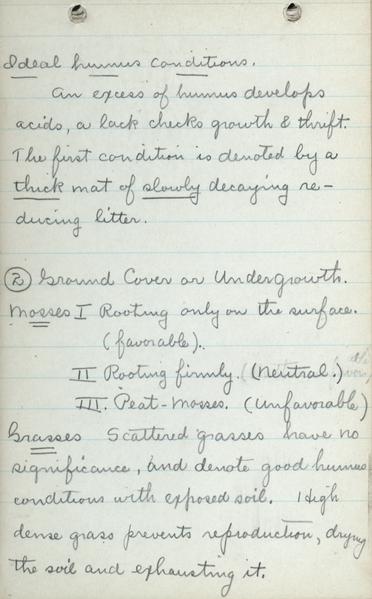 Ideal humus conditions.
An excess of humus develops
acids, a lack checks growth & thrift.
The first condition is denoted by a
thick mat of slowly decaying re-
ducing litter.
② Ground Cover or Undergrowth.
Mosses I Rooting only on the surface.
(favorable).
II Rooting firmly. (Neutral.)
III. Peat-Mosses. (Unfavorable)
Grasses Scattered grasses have no
significance, and denote good humus
conditions with exposed soil. High
dense grass prevents reproduction, drying
the soil and exhausting it.